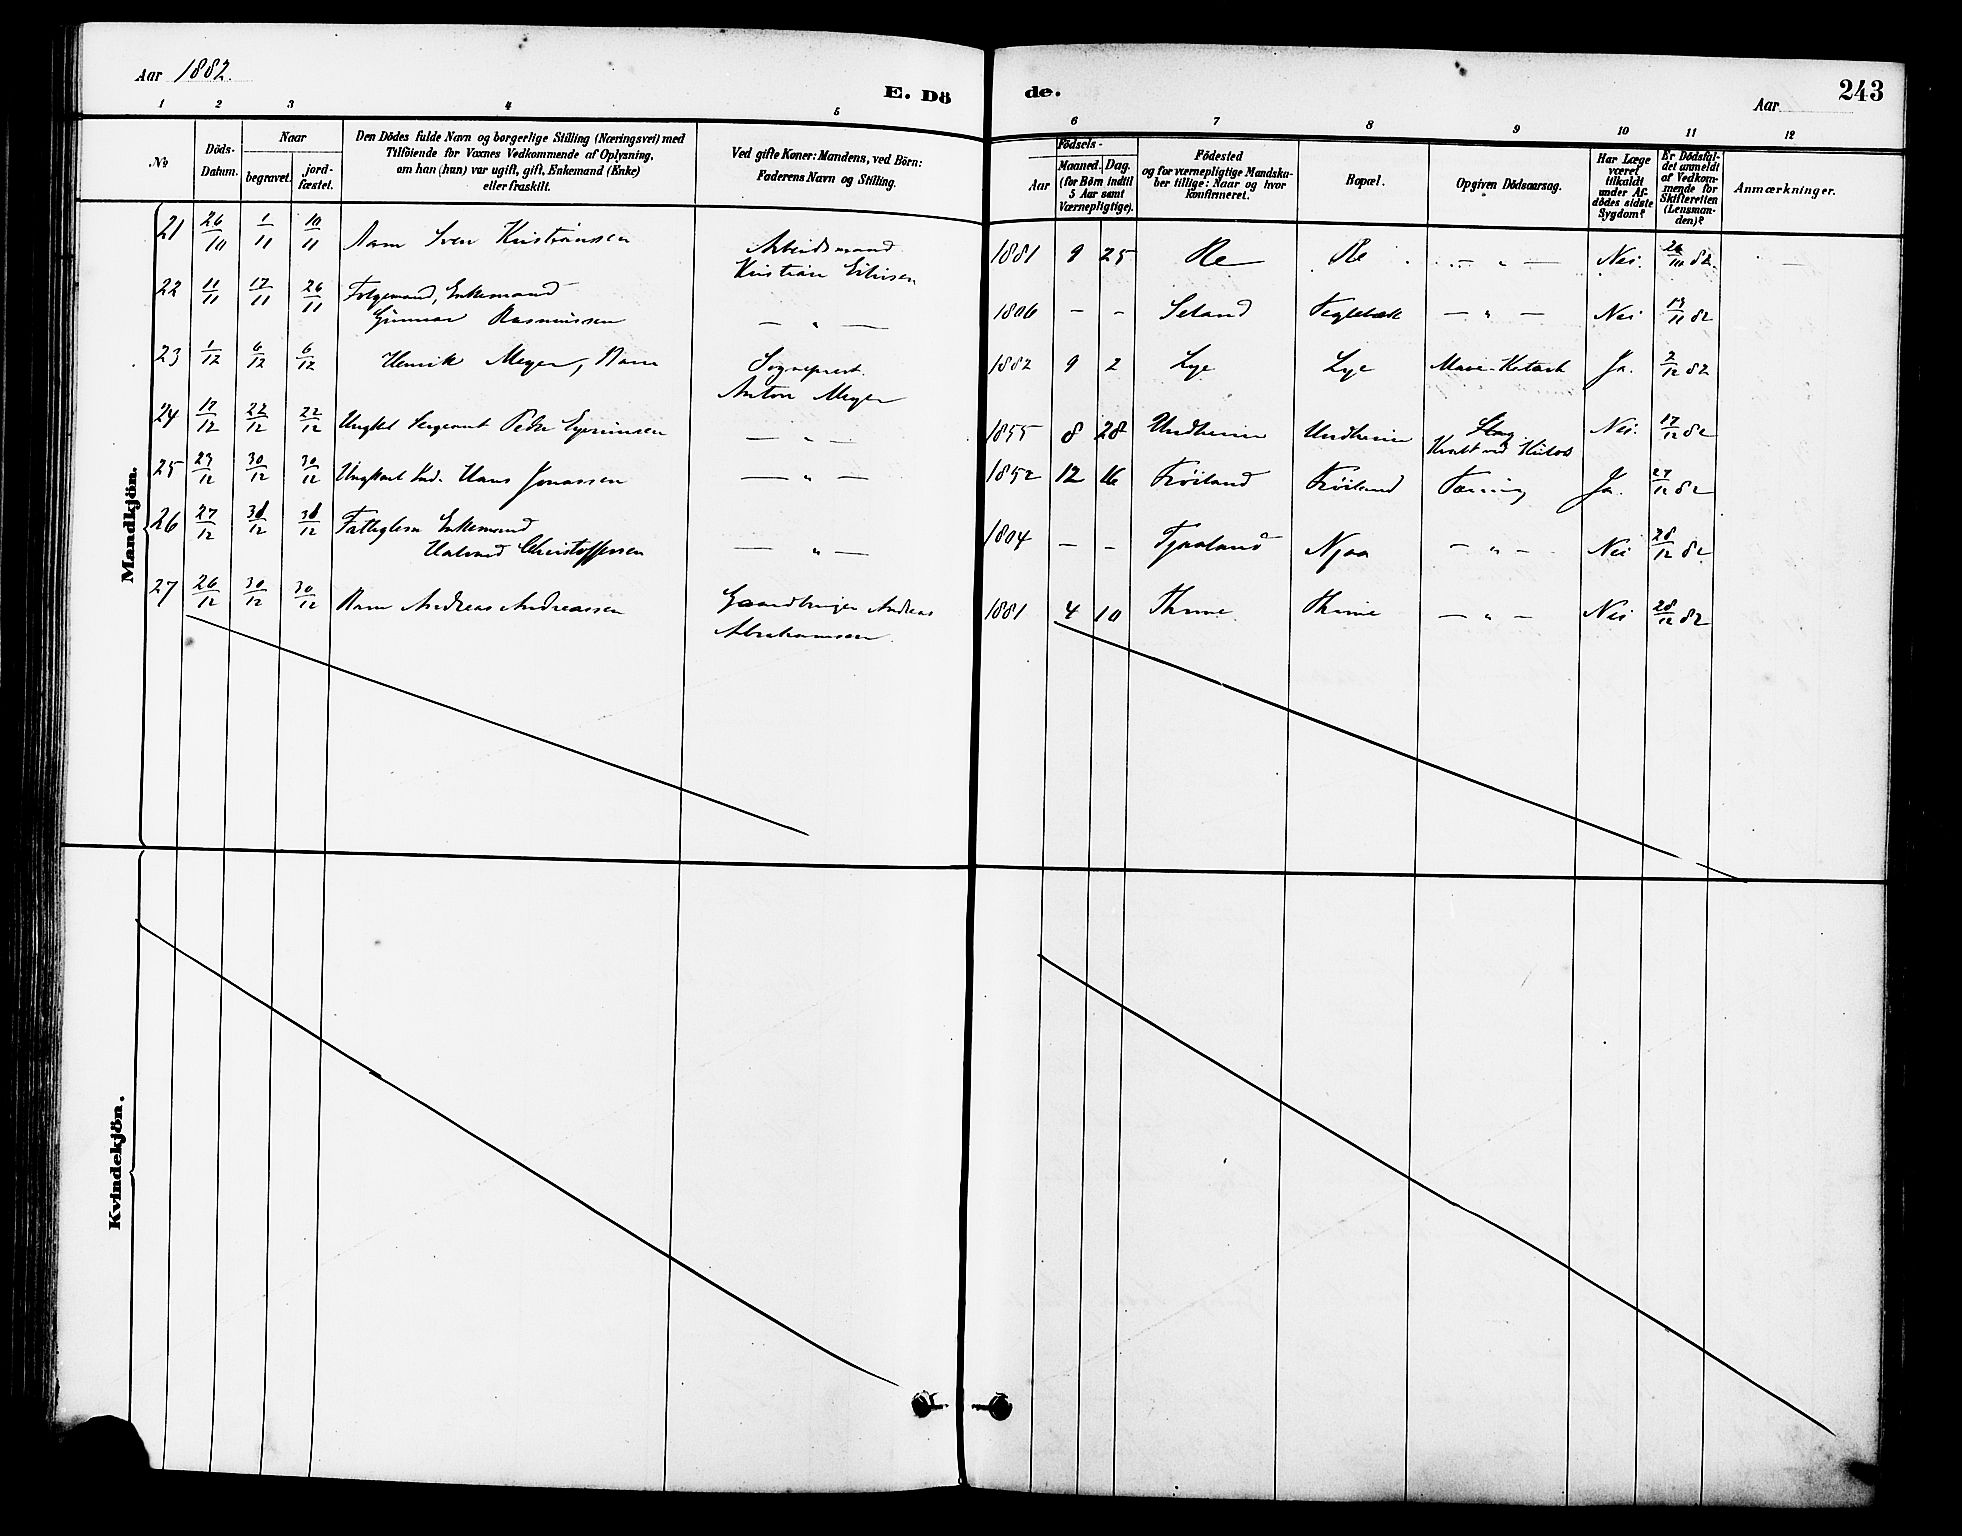 Aar 1882.
E. Dö
de.
Aar
243
1 2 3 4 5 6 7 8 9 10 11 12
No
Döds-
Datum.
Naar
begravet.
jord-
fæstet.
Den Dödes fulde Navn og borgerlige Stilling (Næringsvei) med
Tilföiende for Voxnes Vedkommende af Oplysning,
om han (hun) var ugift, gift, Enkemand (Enke)
eller fraskilt.
Ved gifte Koner: Mandens, ved Börn:
Faderens Navn og Stilling.
Födsels-
Aar
Maaned. Dag.
(for Börn indtil
5 Aar samt
Værnepligtige).
Födested
og for værnepligtige Mandska-
ber tillige: Naar og hvor
konfirmeret.
Bopæl.
Opgiven Dödsaarsag.
Har Læge
været
tilkaldt
under Af-
dödes sidste
Sygdom?
Er Dödsfal-
det anmeldt
af Vedkom-
mende for
Skifteretten
(Lensman-
den)?
Anmærkninger.
Mandkjön.
21 26/10 1/11 10/11 Barn Sven Kristianssen Arbeidsmand 1881 9 25 Re Re — " — Nei. 26/10 82.
Kristian
22 11/11 17/11 26/11 Folgemand, Enkemand
Gunnar Rasmussen — " — 1806 — — Seland Tegleb\u00e6k — " — Nei 13/11 82
23 1/12 6/12 6/12 Henrik Meyer, Barn Sogneprest. 1882 9 2 Lye Lye Mave-Katarh Ja. 2/12 82
Anton Meyer
24 17/12 22/12 22/12 Ungkl Sergeant Peder — " — 1855 8 28 Undheim Undheim Slag Nei. 17/12 82
25 23/12 30/12 30/12 Ungkarl Ind. Hans Jonassen — " — 1852 12 16 Fröiland Fröiland Tæring Ja. 27/12 82
26 27/12 30/12 30/12 Fattiglem Enkemand
Halvard Christoffersen — " — 1804 — — Tjaaland Njaa — " — Nei 28/12 82
27 26/12 30/12 30/12 Barn Andreas Andreassen Gaardbruger Andreas 1881 4 10 Thime Thime — " — Nei 28/12 82
Abrahamsen.
Kvindekjön.